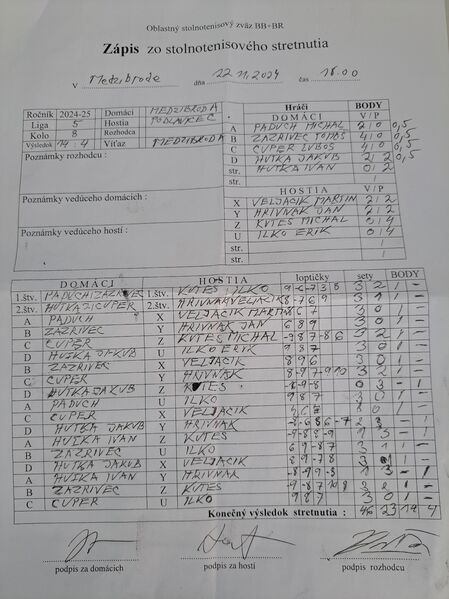 Oblastný stolnotenisový zväz BB+BR
Zápis zo stolnotenisového stretnutia
v Medzibrode dňa 22.11.2024 čas 18.00
Ročník 2024-25 Domáci MEDZIBRODA
Liga 5 Hostia PODLAVREC
Kolo 8 Rozhodca
Výsledok 14:4 Víťaz MEDZIBRODA
Poznámky rozhodcu :
Poznámky vedúceho domácich :
Poznámky vedúceho hostí :
Hráči BODY
DOMÁCI V/P
A PADUCH MICHAL 2/0 0,5
B ZAZRIVEC TOMÁŠ 4/0 0,5
C CUPER ĽUBOŠ 4/0 0,5
D HUTKA JAKUB 2/2 0,5
str. HUTKA IVAN 0/2
str.
HOSTIA V/P
X VELJACIK MARTIN 2/2
Y HRIVNAK JAN 2/2
Z KUTES MICHAL 0/4
U ILKO ERIK 0/4
str.
str.
DOMÁCI HOSTIA loptičky sety BODY
1.štv. PADUCH ZAZRIVEC 1.štv. KUTES ILKO 3 2 1 -
2.štv. HUTKA CUPER 2.štv. HRIVNAK VELJACIK 3 1 1 -
A PADUCH X VELJACIK MARTIN 3 0 1 -
B ZAZRIVEC Y HRIVNAK JAN 6 8 9 3 0 1 -
C CUPER Z KUTES MICHAL 3 2 1 -
D HUTKA JAKUB U ILKO ERIK 9 8 7 3 0 1 -
B ZAZRIVEC X VELJACIK 8 9 6 3 0 1 -
C CUPER Y HRIVNAK 3 2 1 -
D HUTKA JAKUB Z KUTES 0 3 - 1
A PADUCH U ILKO 9 8 7 3 0 1 -
C CUPER X VELJACIK 3 0 1 -
D HUTKA JAKUB Y HRIVNAK 2 3
A HUTKA IVAN Z KUTES 1 3
B ZAZRIVEC U ILKO 1 -
D HUTKA JAKUB X VELJACIK 3 1 1 -
A HUTKA IVAN Y HRIVNAK 1 3 - 1
B ZAZRIVEC Z KUTES 1 -
C CUPER U ILKO 9 8 7 3 0 1 -
Konečný výsledok stretnutia : 46 23 14 4
podpis za domácich podpis za hostí podpis rozhodcu